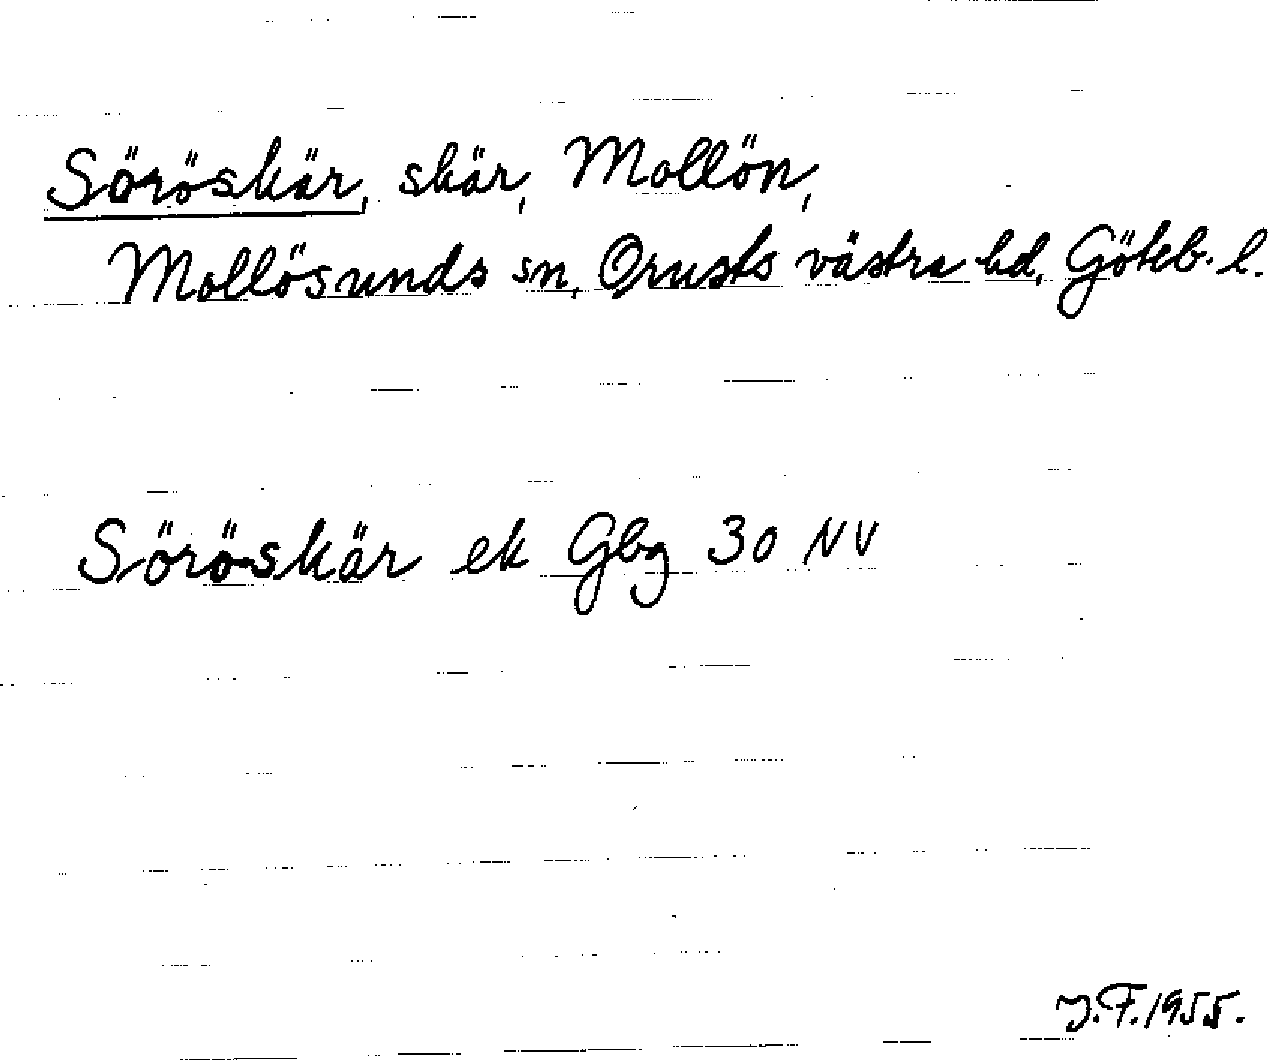 Söröskär, skär, Mollön,
Mollösunds sn, Orusts västra hd, Göteb. l.
Söröskär ek Gbg 30 NV
J.F. 1955.